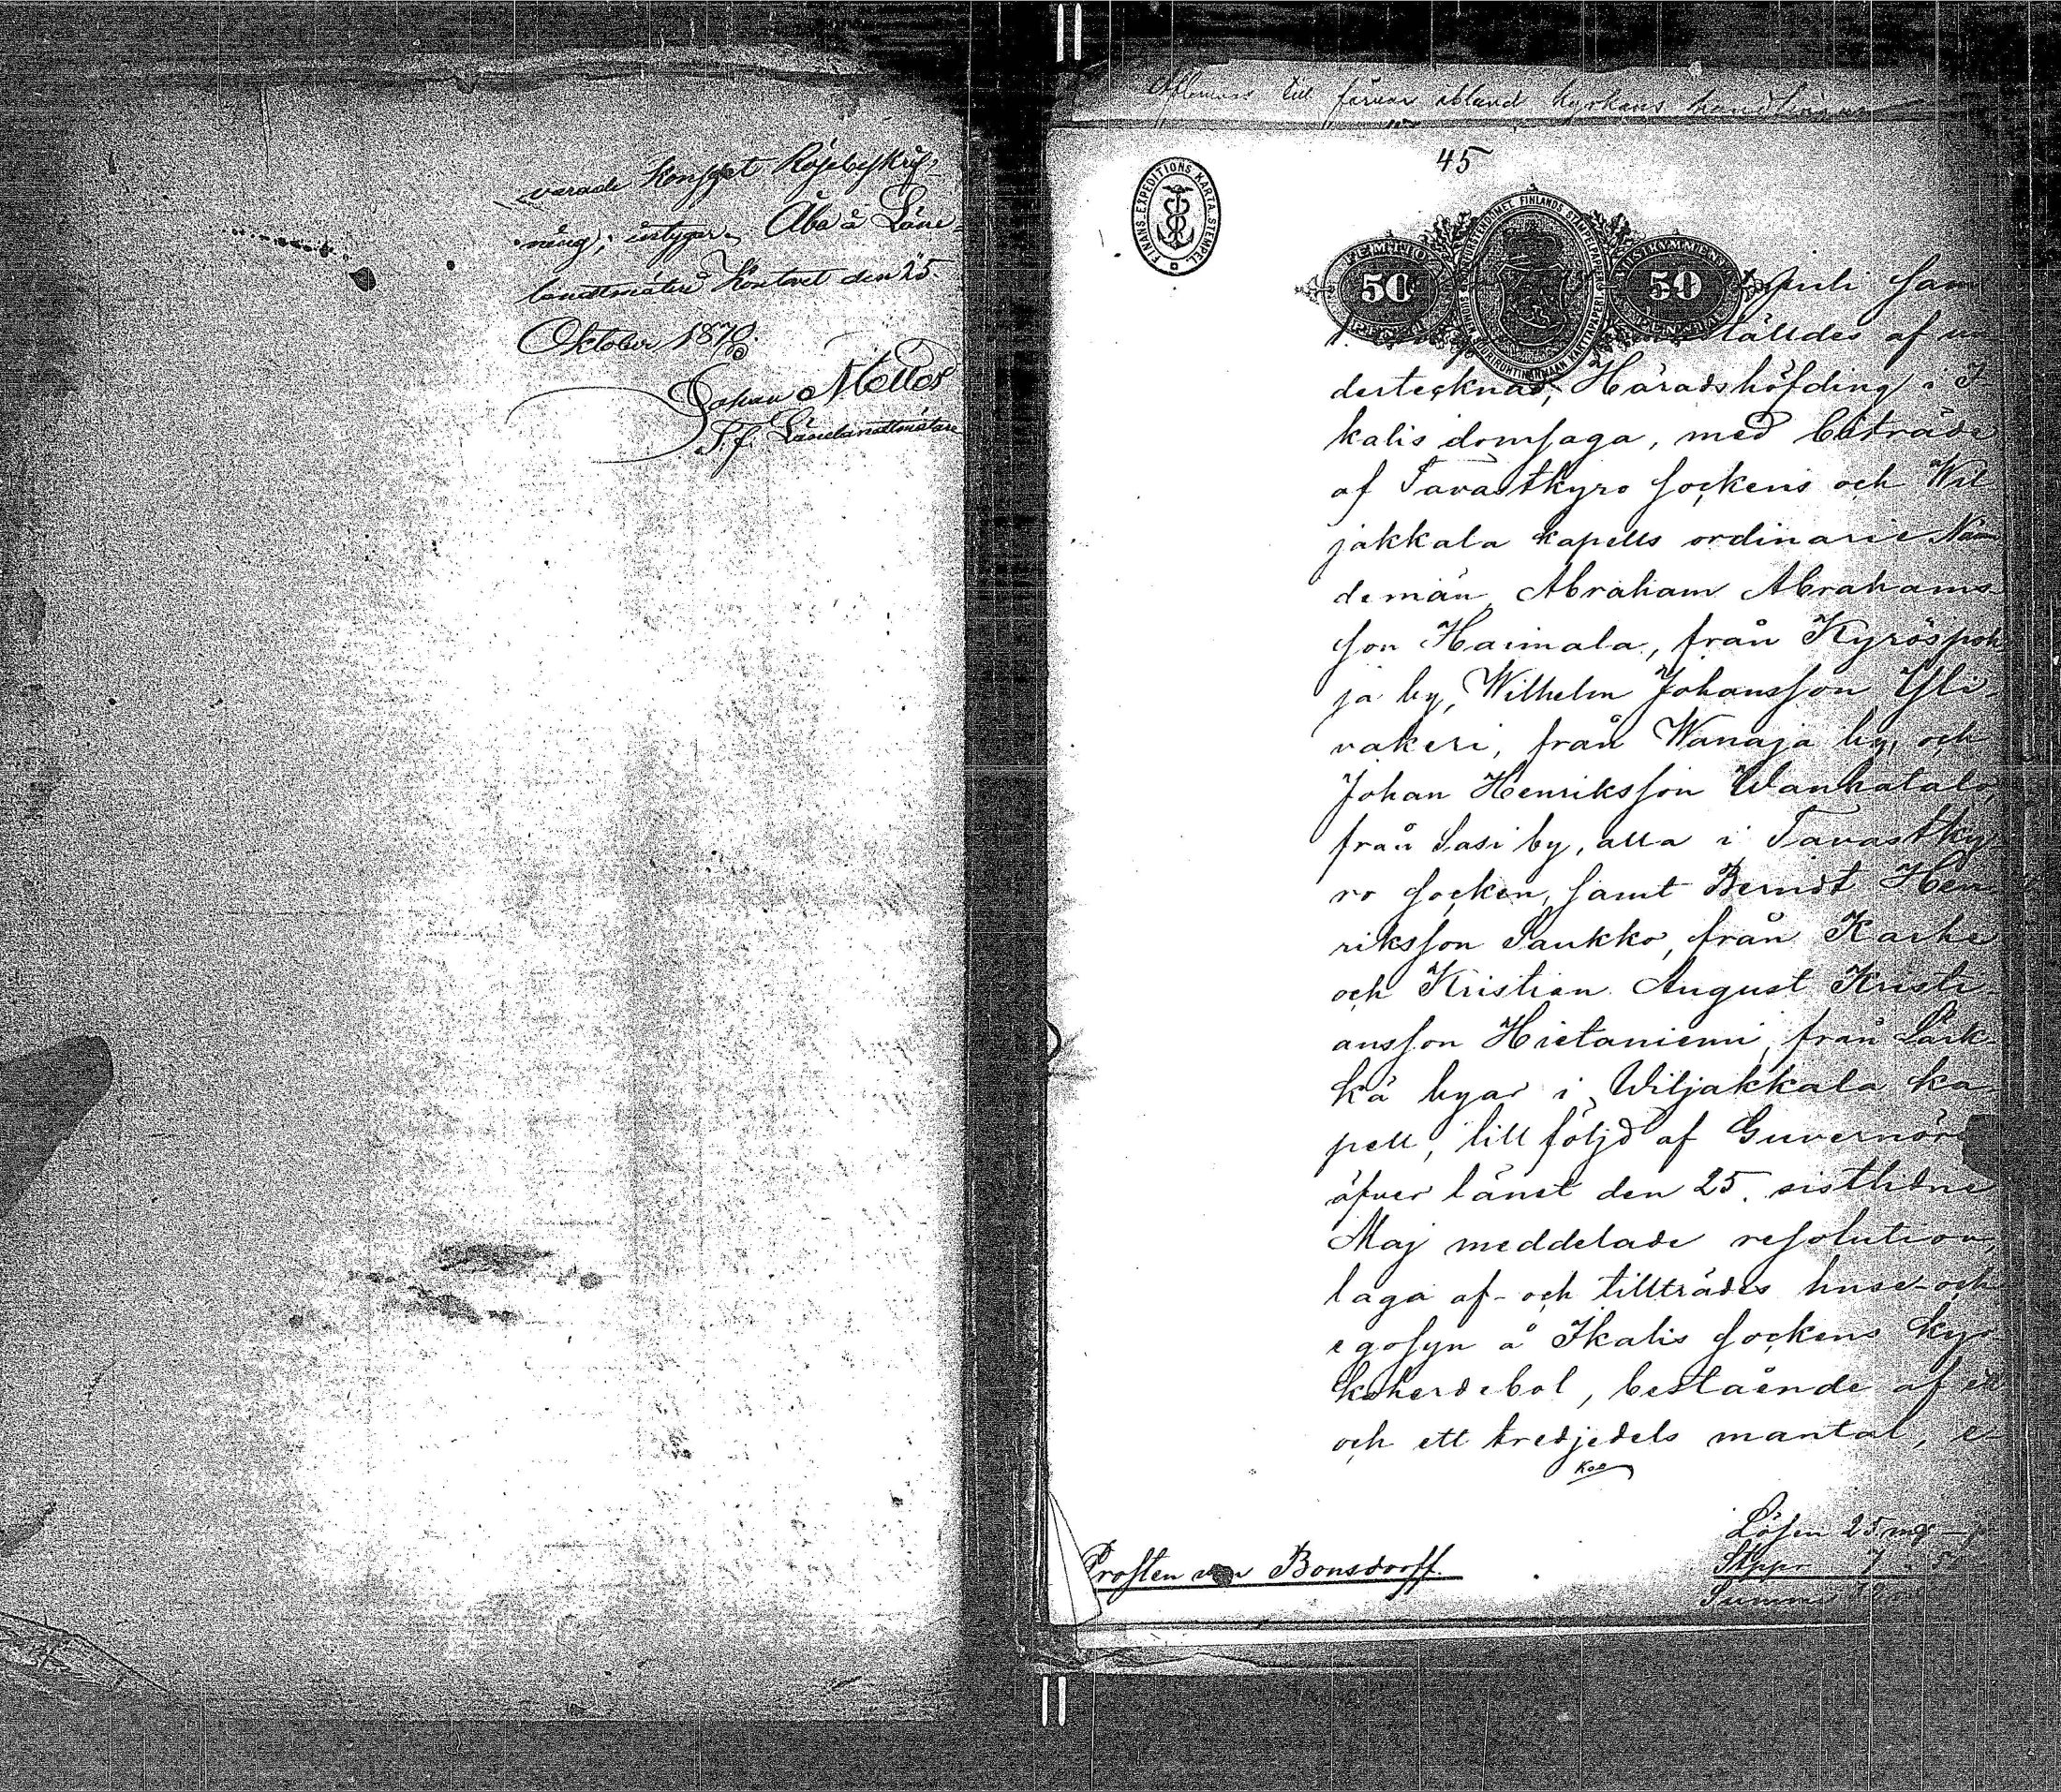 varade Konseptet Röjebeskrif-
ning, intygar. Åbo å Läne-
landtmäteri Kontoret den 25
Oktober 1870.
Johan Mellos
T. f. Länelandtmätare
till förvar ibland kyrkans handlingar
45
FINANS-EXPEDITIONS KARTA-STEMPEL
50
50
Juli sam
ställdes af un
dertecknad, Häradshöfding i I-
kalis domsaga, med biträde
af Tavastkyro sockens och Wil
jakkala kapells ordinarie Näm
demän Abraham Abrahams-
son Haimala, från Kyröspoh
ja by, Wilhelm Johansson Yli-
vakeri, från Wanaja by, och
Johan Henriksson Wanhatalo,
från Sasi by, alla i Tavastky-
ro socken, samt Berndt Hen
riksson Saukko, från Karhe
och Kristian August Kristi-
ansson Hietaniemi, från Lärk-
kä byar i Wiljakkala ka-
pell, till följd af Guvernörs
öfver länet den 25. sistlidne
Maj meddelade resolution,
laga af- och tillträdes huse- och
egosyn å Ikalis sockens kyr-
koherdebol, bestående af ett
och ett tredjedels mantal, e-
Prosten von Bonsdorff.
Lösen 25 m
Stppr 7 . 5
Summa